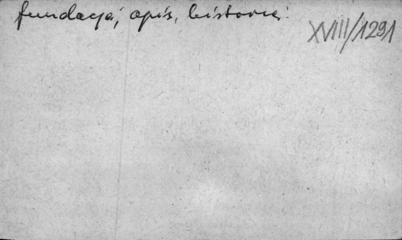 fundacja, opis, historia.
XVIII/1291